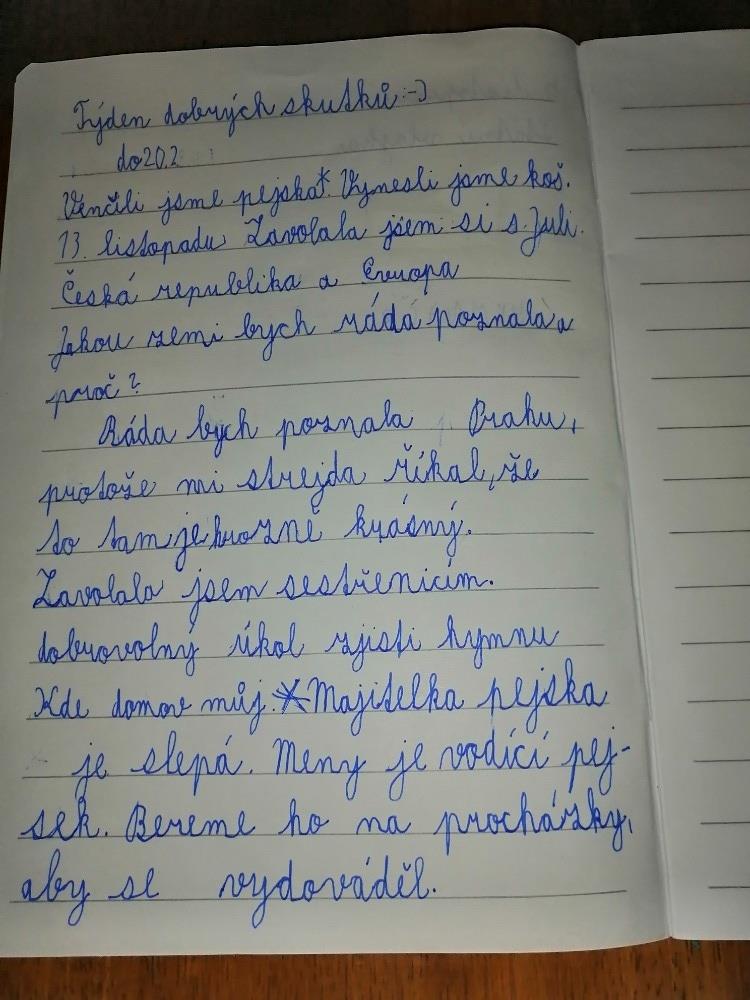 Týden dobrých skutků :-)
do 20.2
Venčili jsme pejska* Vynesli jsme koš.
13. listopadu Zavolala jsem si s Juli.
Česká republika a Evropa
Jakou zemi bych rádá poznala a
proč?
Ráda bych poznala Prahu,
protože mi strejda říkal, že
to tam je hrozně krásný.
Zavolala jsem sestřenicím.
dobrovolný úkol zjisti hymnu
Kde domov můj. *Majitelka pejska
je slepá. Meny je vodící pej-
sek. Bereme ho na procházky,
aby se vydováděl.